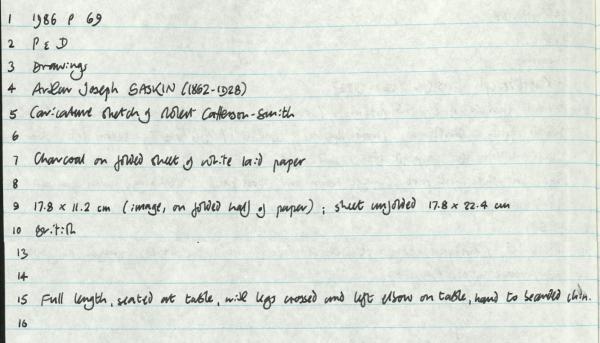 1 1986 P 69
2 P & D
3 Drawings
4 Arthur Joseph GASKIN (1862-1928)
5 Caricature sketch of Robert Catterson-Smith
6
7 Charcoal on folded sheet of white laid paper
8
9 17.8 x 11.2 cm (image, on folded half of paper); sheet unfolded 17.8 x 22.4 cm
10 British
13
14
15 Full length, seated at table, with legs crossed and left elbow on table, hand to bearded chin.
16